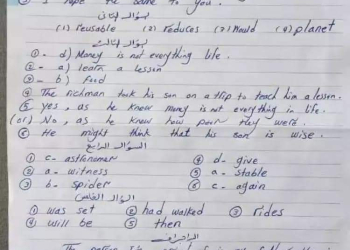 I hope the same to you.
السؤال الثاني
(1) reusable (2) reduces (3) would (4) planet
السؤال الثالث
①- d) Money is not everything life.
②- a) learn a lesson
③- b) food
④ The richman took his son on a trip to teach him a lesson.
⑤ yes, as he know money is not everything in life.
(or) No, as he know how poor they were.
⑥ He might think that his son is wise.
السؤال الرابع
① c- astronomer ④ d- give
② a- witness ⑤ a- stable
③ b- spider ⑥ c- again
السؤال الخامس
① was set ② had walked ③ rides
④ will be ⑤ then